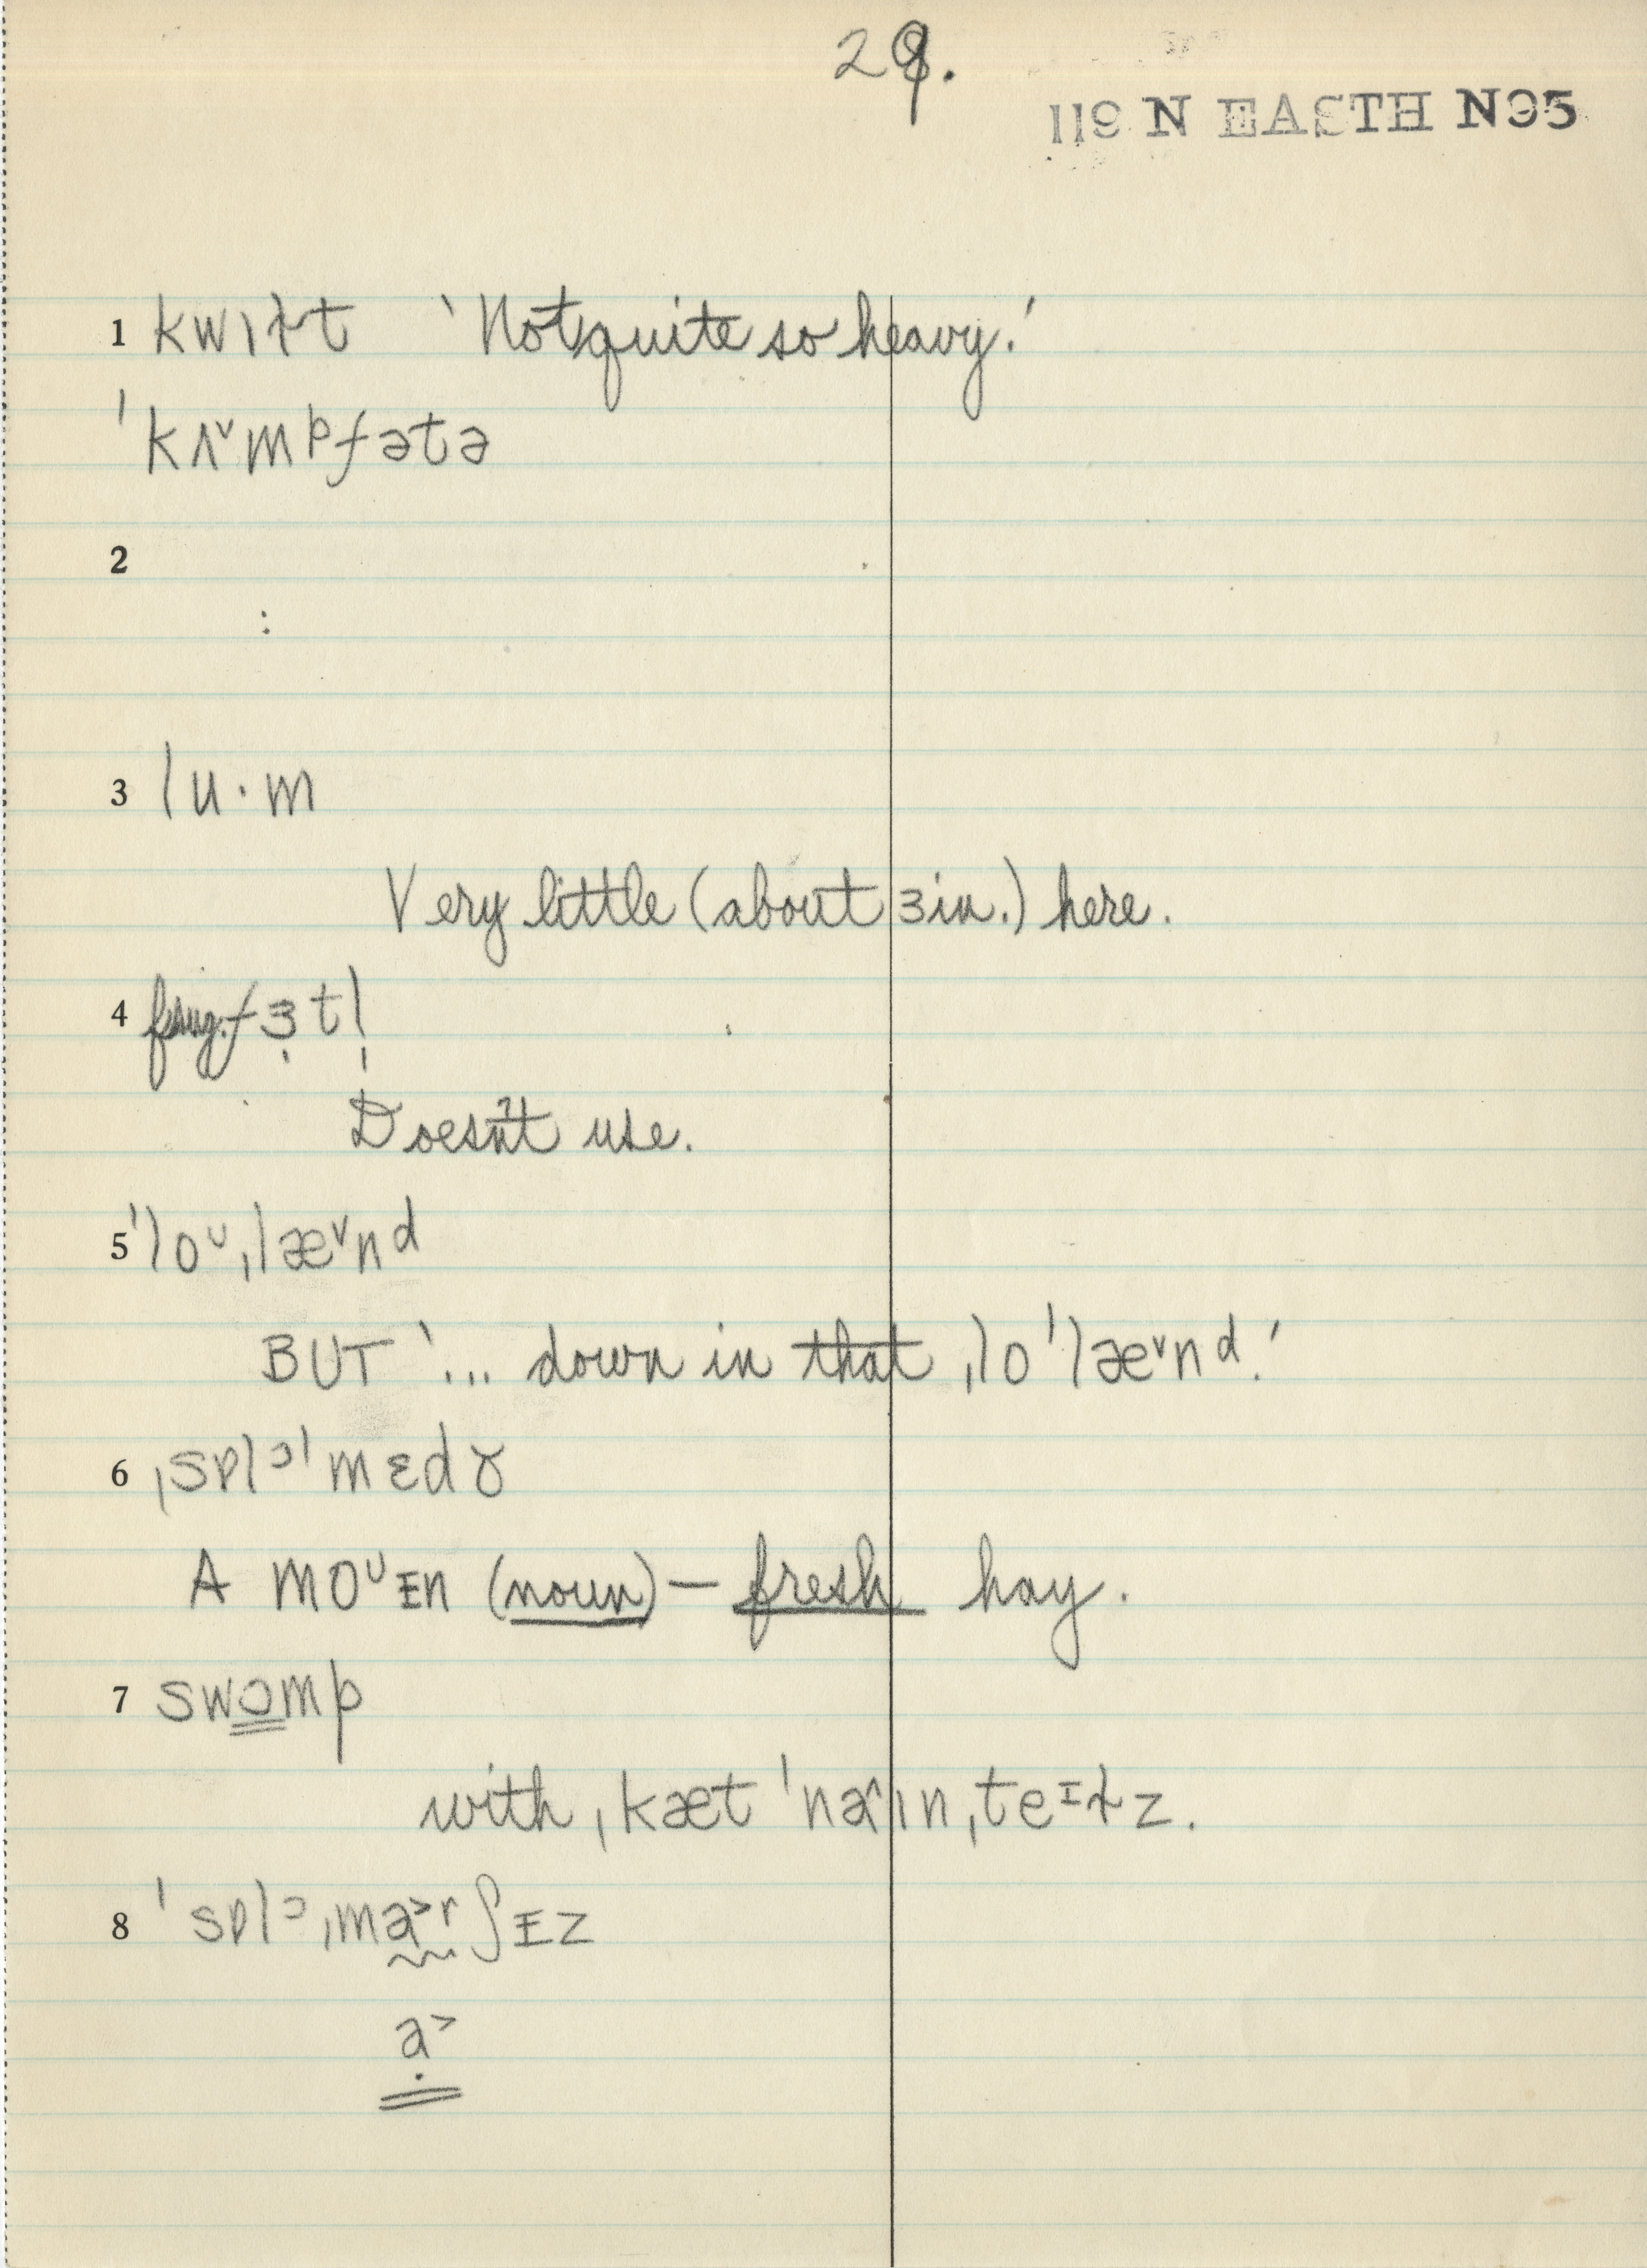 29.
119 N EASTH N95
1 kwɪɫt ‘Not quite so heavy.’
ˈkʌ˅mpfətə
2
:
3 lu·m
Very little (about 3 in.) here.
4 fɜ̣tl̩
Doesn't use.
5 ˈloᴜˌlæ˅nd
BUT ‘... down in that ˌloˈlæ˅nd.’
6 ˌsɒlᵓˈmɛdɤ
A moᴜᴇn (noun) — fresh hay.
7 swɔmp
with ˌkætˈnaˆɪnˌteᶦɫz.
8 ˈsɒlᵓˌma˃rʃᵻz
a˃